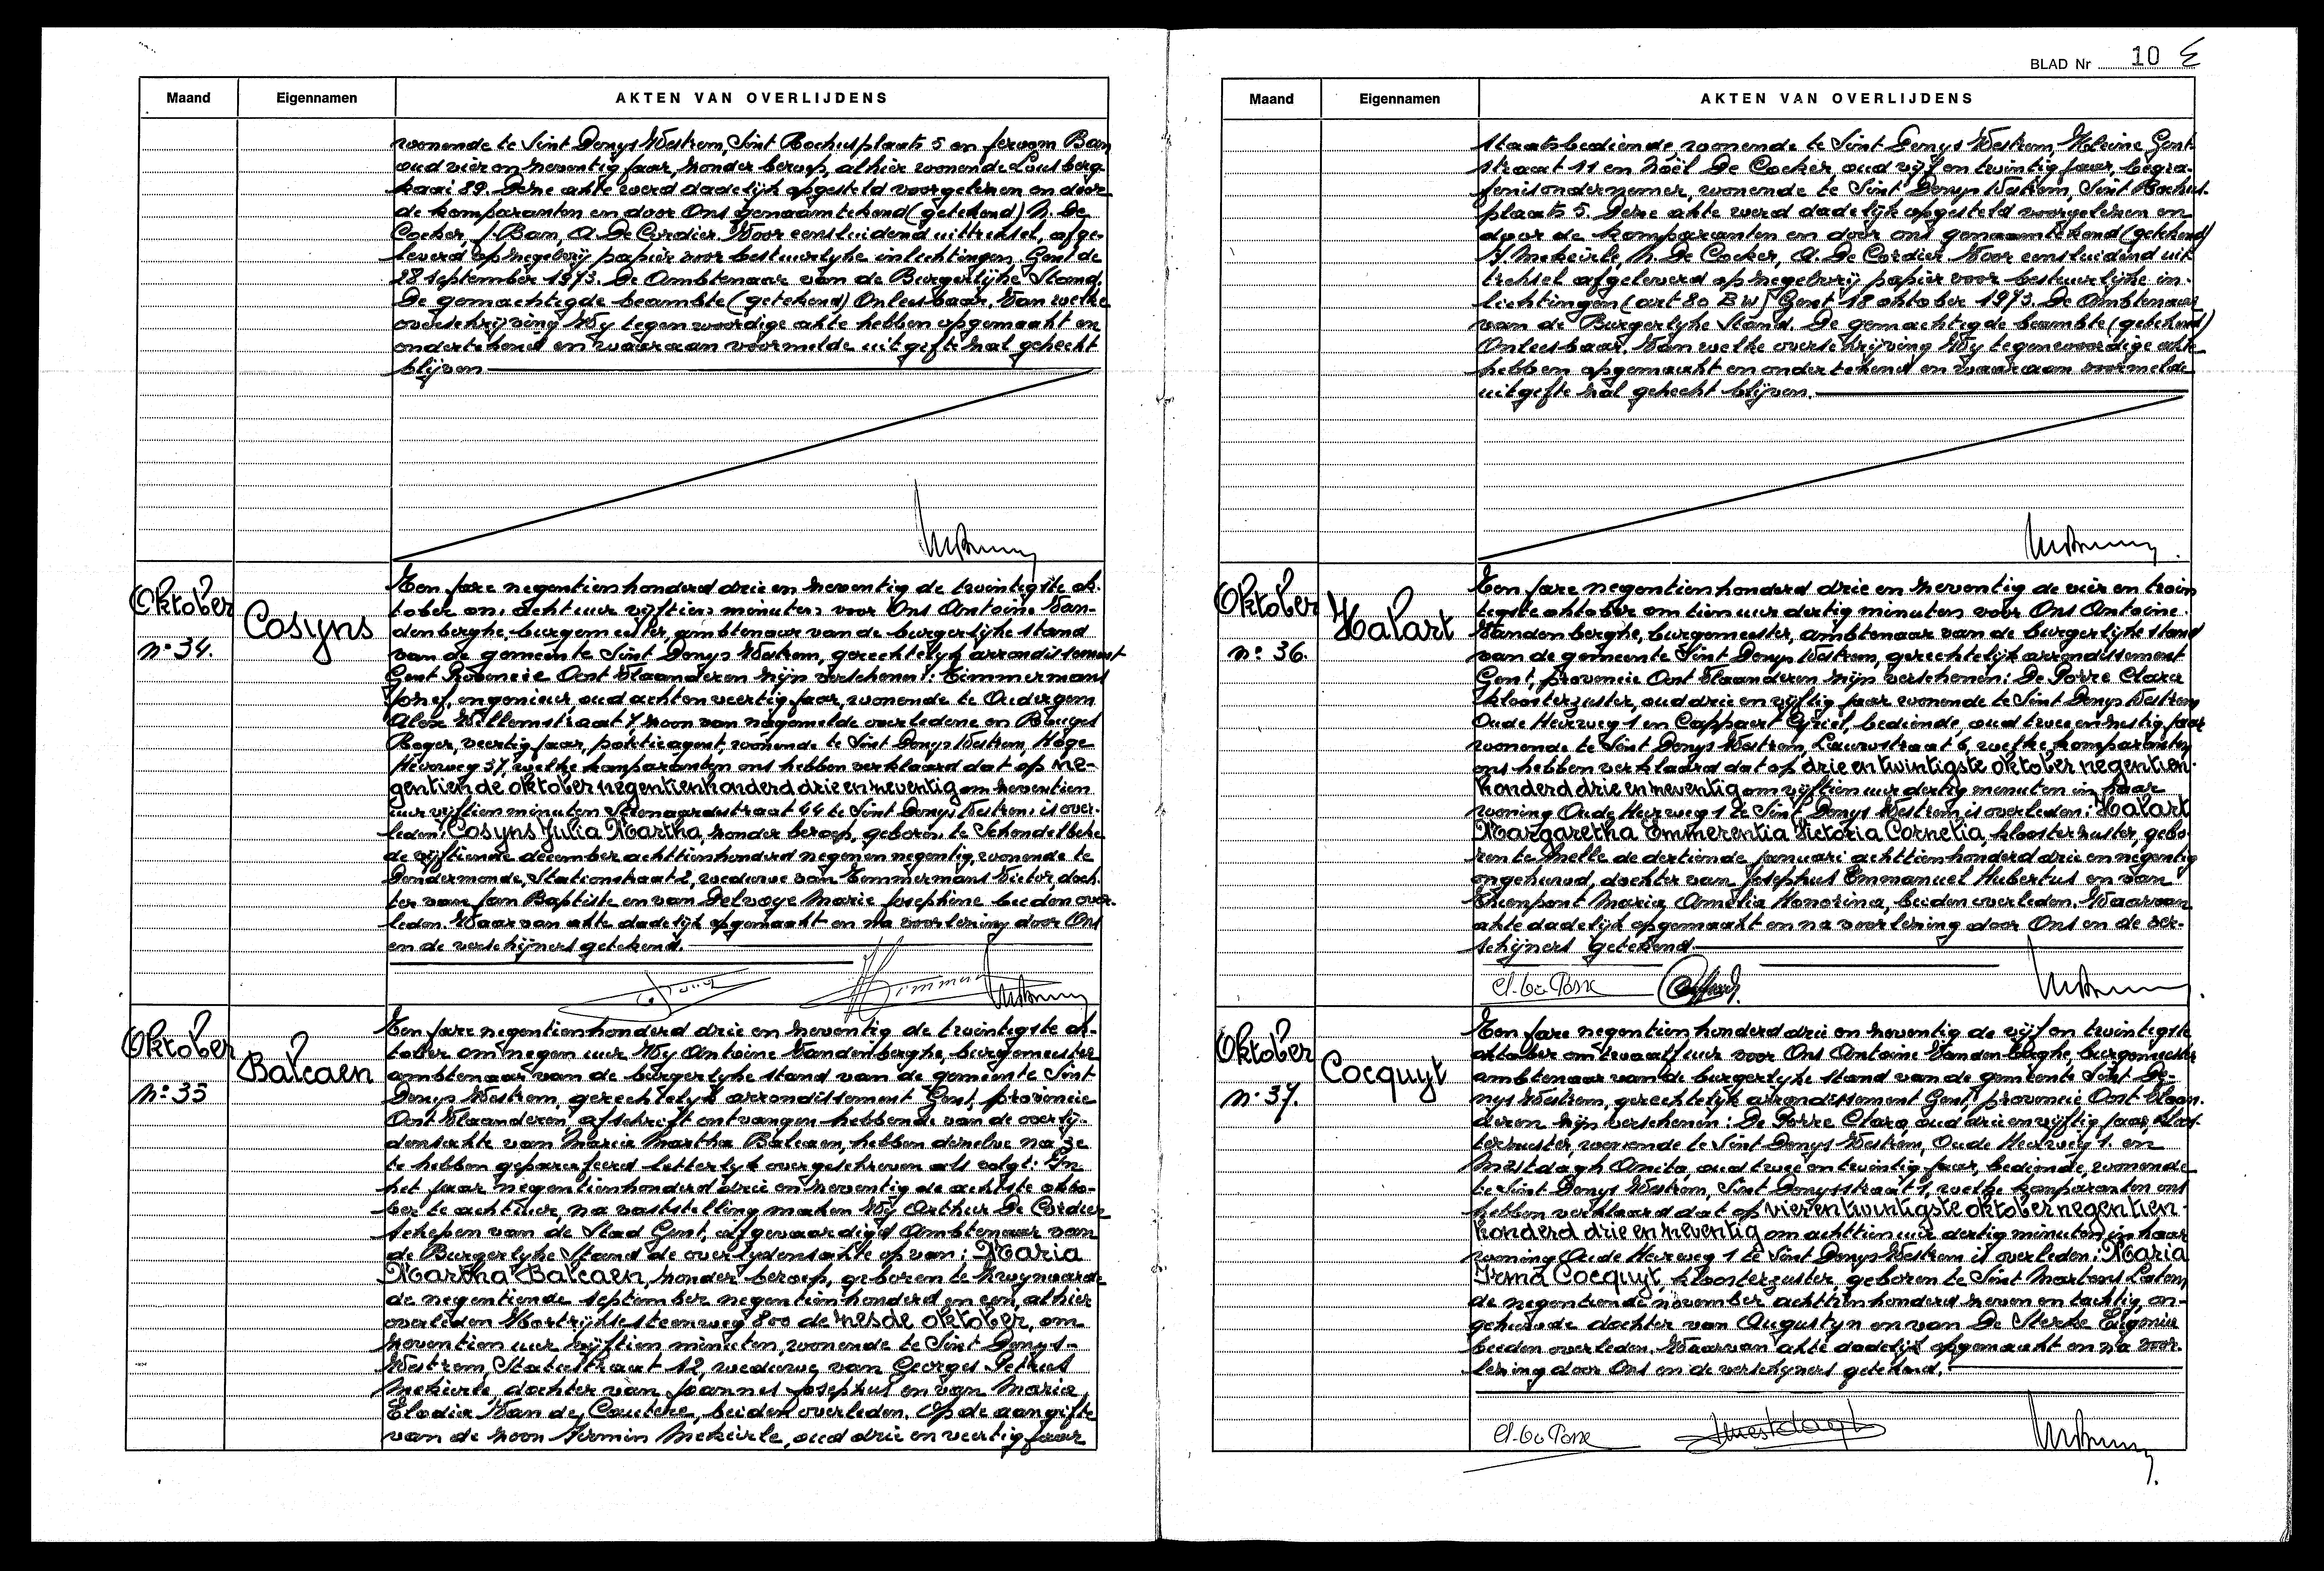 Maand Eigennamen AKTEN VAN OVERLIJDENS
wonende te Sint Denys Westrem, Sint Rochusplaats 5 en Jeroom Bam
oud vier en zeventig jaar, zonder beroep, alhier wonende Lousberg-
kaai 89. Deze akte werd dadelijk opgesteld voorgelezen en door
de komparanten en door Ons genaamtekend (getekend) N. De
Cocker, J. Bam, A. De Cordier. Voor eensluidend uittreksel, afge-
leverd op zegelvrij papier voor bestuurlijke inlichtingen. Gent de
28 september 1973. De Ambtenaar van de Burgerlijke Stand.
De gemachtigde beambte (getekend) Onleesbaar. Van welke
overschrijving Wy tegenwoordige akte hebben opgemaakt en
ondertekend en waaraan voormelde uitgifte zal gehecht
blijven
Oktober
n° 34.
Cosyns
Een jare negentienhonderd drie en zeventig de twintigste ok-
tober om acht uur vijftien minuten voor Ons Antoine Van-
denberghe, burgemeester, ambtenaar van de burgerlijke stand
van de gemeente Sint Denys Westrem, gerechtelyk arrondissement
Gent Provincie Oost Vlaanderen zijn verschenen: Timmermans
Jozef, ingenieur, oud achtenveertig jaar, wonende te Oudergem
Alex Willemstraat 7, zoon van nagemelde overledene en
Roger, veertig jaar, politieagent, wonende te Sint Denys Westrem, Hoge
Heirweg 37, welke komparanten ons hebben verklaard dat op ne-
gentiende oktober negentienhonderd drie en zeventig om zeventien
uur vijftien minuten 44 te Sint Denys Westrem is over-
leden: Cosyns Julia Martha, zonder beroep, geboren te Schendelbeke
de vijftiende december achttienhonderd negen en negentig, wonende te
Dendermonde, Stationstraat 2, weduwe van Timmermans Victor, doch-
ter van Jan Baptiste en van Delvoye Marie Josephine beiden over-
leden. Waarvan akte dadelijk opgemaakt en na voorlezing door Ons
en de verschijners getekend.
Oktober
n° 35
Balcaen
Een jare negentienhonderd drie en zeventig de twintigste ok-
tober om negen uur Wy Antoine Vandenberghe, burgemeester
ambtenaar van de burgerlyke stand van de gemeente Sint
Denys Westrem, gerechtelyk arrondissement Gent, provincie
Oost Vlaanderen afschrift ontvangen hebbende van de overlij-
densakte van Maria Martha Balcaen, hebben dezelve na ze
te hebben geparafeerd letterlyk overgeschreven als volgt: In
het jaar negentienhonderd drie en zeventig de achtste okto-
ber te acht uur, na vaststelling maken Wij Arthur De Cordier
schepen van de Stad Gent, afgevaardigd Ambtenaar van
de Burgerlyke Stand de overlydensakte op van: Maria
Martha Balcaen, zonder beroep, geboren te Zwynaarde
de negentiende september negentienhonderd en een, alhier
overleden Kortrijksesteenweg 800 de zesde oktober, om
zeventien uur vijftien minuten, wonende te Sint Denys-
Westrem, Statiestraat 12, weduwe van Georges Petrus
Mekeirle, dochter van Joannes Josephus en van Maria
Elodia Van de Cautere, beiden overleden. Op de aangifte
van de zoon Firmin Mekeirle, oud drie en veertig jaar
BLAD Nr 10
Maand Eigennamen AKTEN VAN OVERLIJDENS
staatsbediende wonende te Sint Denys Westrem, Kleine Gent-
straat 11 en Noël De Cocker oud vijf en twintig jaar, begra-
fenisondernemer, wonende te Sint Denys Westrem, Sint Rochus-
plaats 5. Deze akte werd dadelijk opgesteld voorgelezen en
door de komparanten en door ons genaamtekend (getekend)
F. Mekeirle, N. De Cocker, A. De Cordier. Voor eensluidend uit-
treksel afgeleverd op zegelvrij papier voor bestuurlijke in-
lichtingen (art 80 BW) Gent 18 oktober 1973. De Ambtenaar
van de Burgerlyke Stand. De gemachtigde beambte (getekend)
Onleesbaar. Van welke overschrijving Wy tegenwoordige akte
hebben opgemaakt en ondertekend en waaraan voormelde
uitgifte zal gehecht blijven.
Oktober
n° 36.
Halart
Een jare negentienhonderd drie en zeventig de vier en twin
tigste oktober om tien uur dertig minuten voor Ons Antoine
Vandenberghe, burgemeester, ambtenaar van de burgerlijke stand
van de gemeente Sint Denys Westrem, gerechtelijk arrondissement
Gent, provincie Oost Vlaanderen zijn verschenen: De Porre Clara
kloosterzuster, oud drie en vijftig jaar wonende te Sint Denys Westrem
Oude Heirweg 1 en Cappaert Cyriel, bediende, oud twee en zestig jaar
wonende te Sint Denys Westrem, Leeuwstraat 6, welke komparanten
ons hebben verklaard dat op drie en twintigste oktober negentien-
honderd drie en zeventig om vijftien uur dertig minuten in haar
woning Oude Heirweg 1 te Sint Denys Westrem is overleden: Halart
Margaretha Emmerentia Victoria Cornelia, kloosterzuster, gebo-
ren te Melle de dertiende januari achttienhonderd drie en negentig
ongehuwd, dochter van Josephus Emmanuel Hubertus en van
Thienpont Maria Amelia Honorina, beiden overleden. Waarvan
akte dadelijk opgemaakt en na voorlezing door Ons en de ver-
schijners getekend.
Cl. De Porre
Oktober
n° 37.
Cocquyt
Een jare negentienhonderd drie en zeventig de vijf en twintigste
oktober om twaalf uur voor Ons Antoine Vandenberghe, burgemeester
ambtenaar van de burgerlyke stand van de gemeente Sint De-
nys Westrem, gerechtelyk arrondissement Gent, provincie Oost Vlaan-
deren zijn verschenen: De Porre Clara, oud drie en vijftig jaar, kloos-
terzuster, wonende te Sint Denys Westrem, Oude Heirweg 1. en
Mestdagh Anita, oud twee en twintig jaar, bediende, wonende
te Sint Denys Westrem, Sint Denysstraat 1, welke komparanten ons
hebben verklaard dat op vier en twintigste oktober negentien-
honderd drie en zeventig om achttien uur dertig minuten in haar
woning Oude Heirweg 1 te Sint Denys Westrem is overleden: Maria
Irma Cocquyt, kloosterzuster geboren te Sint Martens Latem
de negentiende november achttienhonderd zeven en tachtig on-
gehuwde dochter van Augustyn en van De Sterke Eugenie
beiden overleden. Waarvan akte dadelijk opgemaakt en na voor-
lezing door Ons en de verschyners getekend.
Cl. De Porre Mestdagh